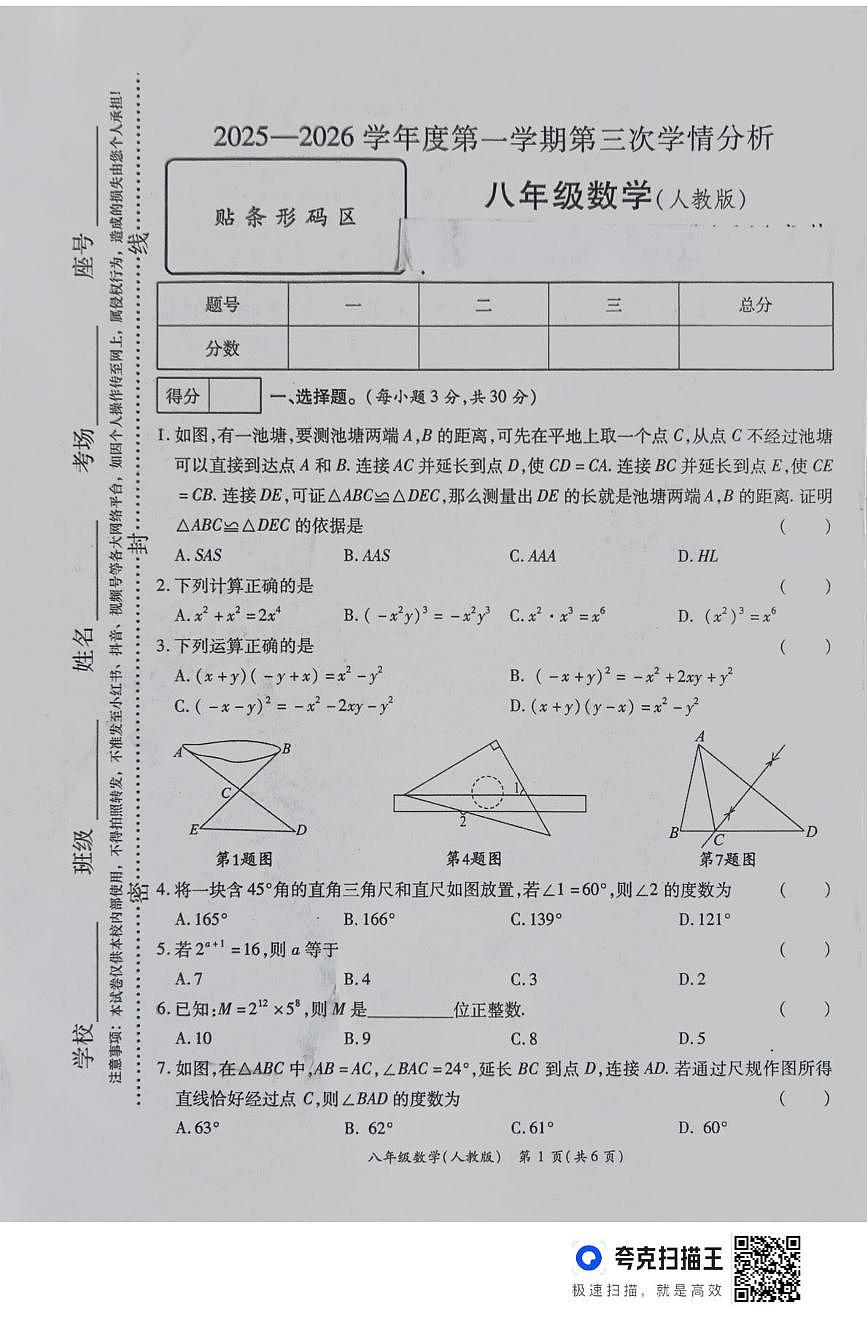 2025—2026学年度第一学期第三次学情分析
贴条形码区
八年级数学(人教版)
题号 一 二 三 总分
分数
得分
一、选择题。(每小题3分,共30分)
1. 如图,有一池塘,要测池塘两端A,B的距离,可先在平地上取一个点C,从点C不经过池塘
可以直接到达点A和B. 连接AC并延长到点D,使CD=CA. 连接BC并延长到点E,使CE
=CB. 连接DE,可证△ABC≌△DEC,那么测量出DE的长就是池塘两端A,B的距离. 证明
△ABC≌△DEC的依据是 ( )
A. SAS B. AAS C. AAA D. HL
2. 下列计算正确的是 ( )
A. x²+x²=2x⁴ B. (-x²y)³=-x²y³ C. x²·x³=x⁶ D. (x²)³=x⁶
3. 下列运算正确的是 ( )
A. (x+y)(-y+x)=x²-y² B. (-x+y)²=-x²+2xy+y²
C. (-x-y)²=-x²-2xy-y² D. (x+y)(y-x)=x²-y²
A B C E D
1 2
A B C D
第1题图 第4题图 第7题图
4. 将一块含45°角的直角三角尺和直尺如图放置,若∠1=60°,则∠2的度数为 ( )
A. 165° B. 166° C. 139° D. 121°
5. 若2ᵃ⁺¹=16,则a等于 ( )
A. 7 B. 4 C. 3 D. 2
6. 已知:M=2¹²×5⁸,则M是________位正整数. ( )
A. 10 B. 9 C. 8 D. 5
7. 如图,在△ABC中,AB=AC,∠BAC=24°,延长BC到点D,连接AD. 若通过尺规作图所得
直线恰好经过点C,则∠BAD的度数为 ( )
A. 63° B. 62° C. 61° D. 60°
八年级数学(人教版) 第1页(共6页)
学校 班级 姓名 考场 座号
注意事项:本试卷仅供本校内部使用,不得拍照转发,不准发至小红书、抖音、视频号等各大网络平台,如因个人操作传至网上,属侵权行为,造成的损失由您个人承担!
密 封 线
夸克扫描王
极速扫描,就是高效